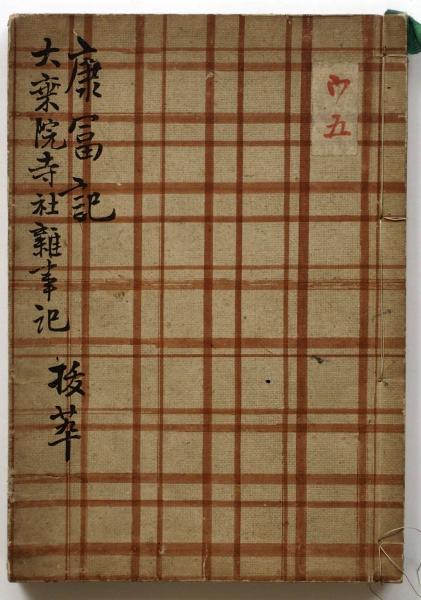 ウ五
康冨記
大乘院寺社雑事記
抜萃